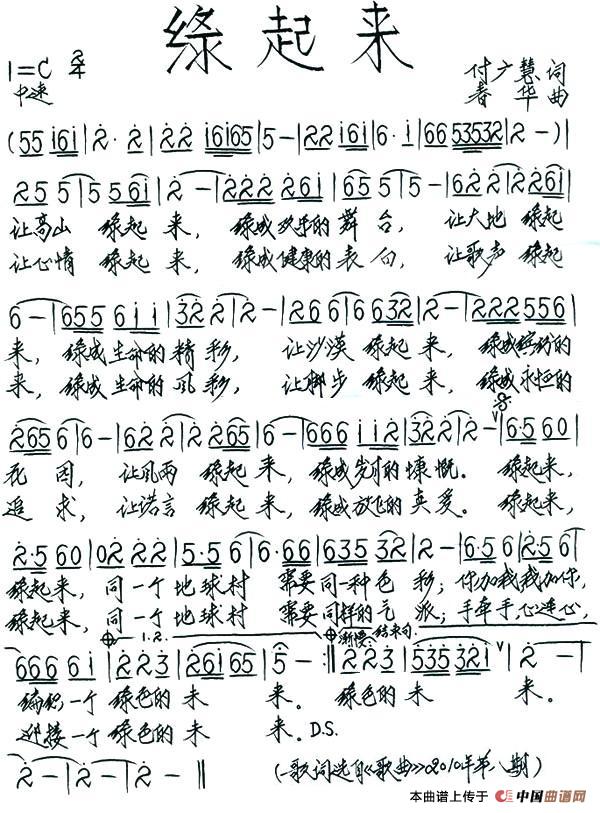 绿起来
1=C 2/4
付广慧 词
中速
春华 曲
(55 i6i|2·2|22 i6i65|5-|22 i6i|6·i|66 53532|2-)|
25 5|5 56i|2-|222 26i|65 5|5-|622|2 26i|
让高山 绿起 来, 绿成欢乐的 舞 台, 让大地 绿起
让心情 绿起 来, 绿成健康的 表 白, 让歌声 绿起
6-|655 6i i|32 2|2-|26 6|6 632|2-|222 556|
来, 绿成生命的 精 彩, 让沙漠 绿起 来, 绿成缤纷的
来, 绿成生命的 风 彩, 让脚步 绿起 来, 绿成永恒的
265 6|6-|62 2|2 265|6-|666 i i2|32 2|2-|6·5 60|
花 园, 让风雨 绿起 来, 绿成 的 慷 慨。 绿起来,
追 求, 让诺言 绿起 来, 绿成放飞的 真 爱。 绿起来,
2·5 60|02 22|5·5 6|6·66|635 32|2-|6·5 6|2·56|
绿起来, 同一个 地球村 需要同一种色 彩; 你加我,我加你,
绿起来, 同一个 地球村 需要同样的气 派; 手牵手,心连心,
1.2. 渐慢 结束句
666 6i|2 23|26i 65|5-:‖2 23|535 32i|2-|
编织一个 绿色的 未 来。 绿色的 未 来。
迎接一个 绿色的 未 来。D.S.
2-|2-|2-‖
(歌词选自《歌曲》2010年第八期)
本曲谱上传于 中国曲谱网